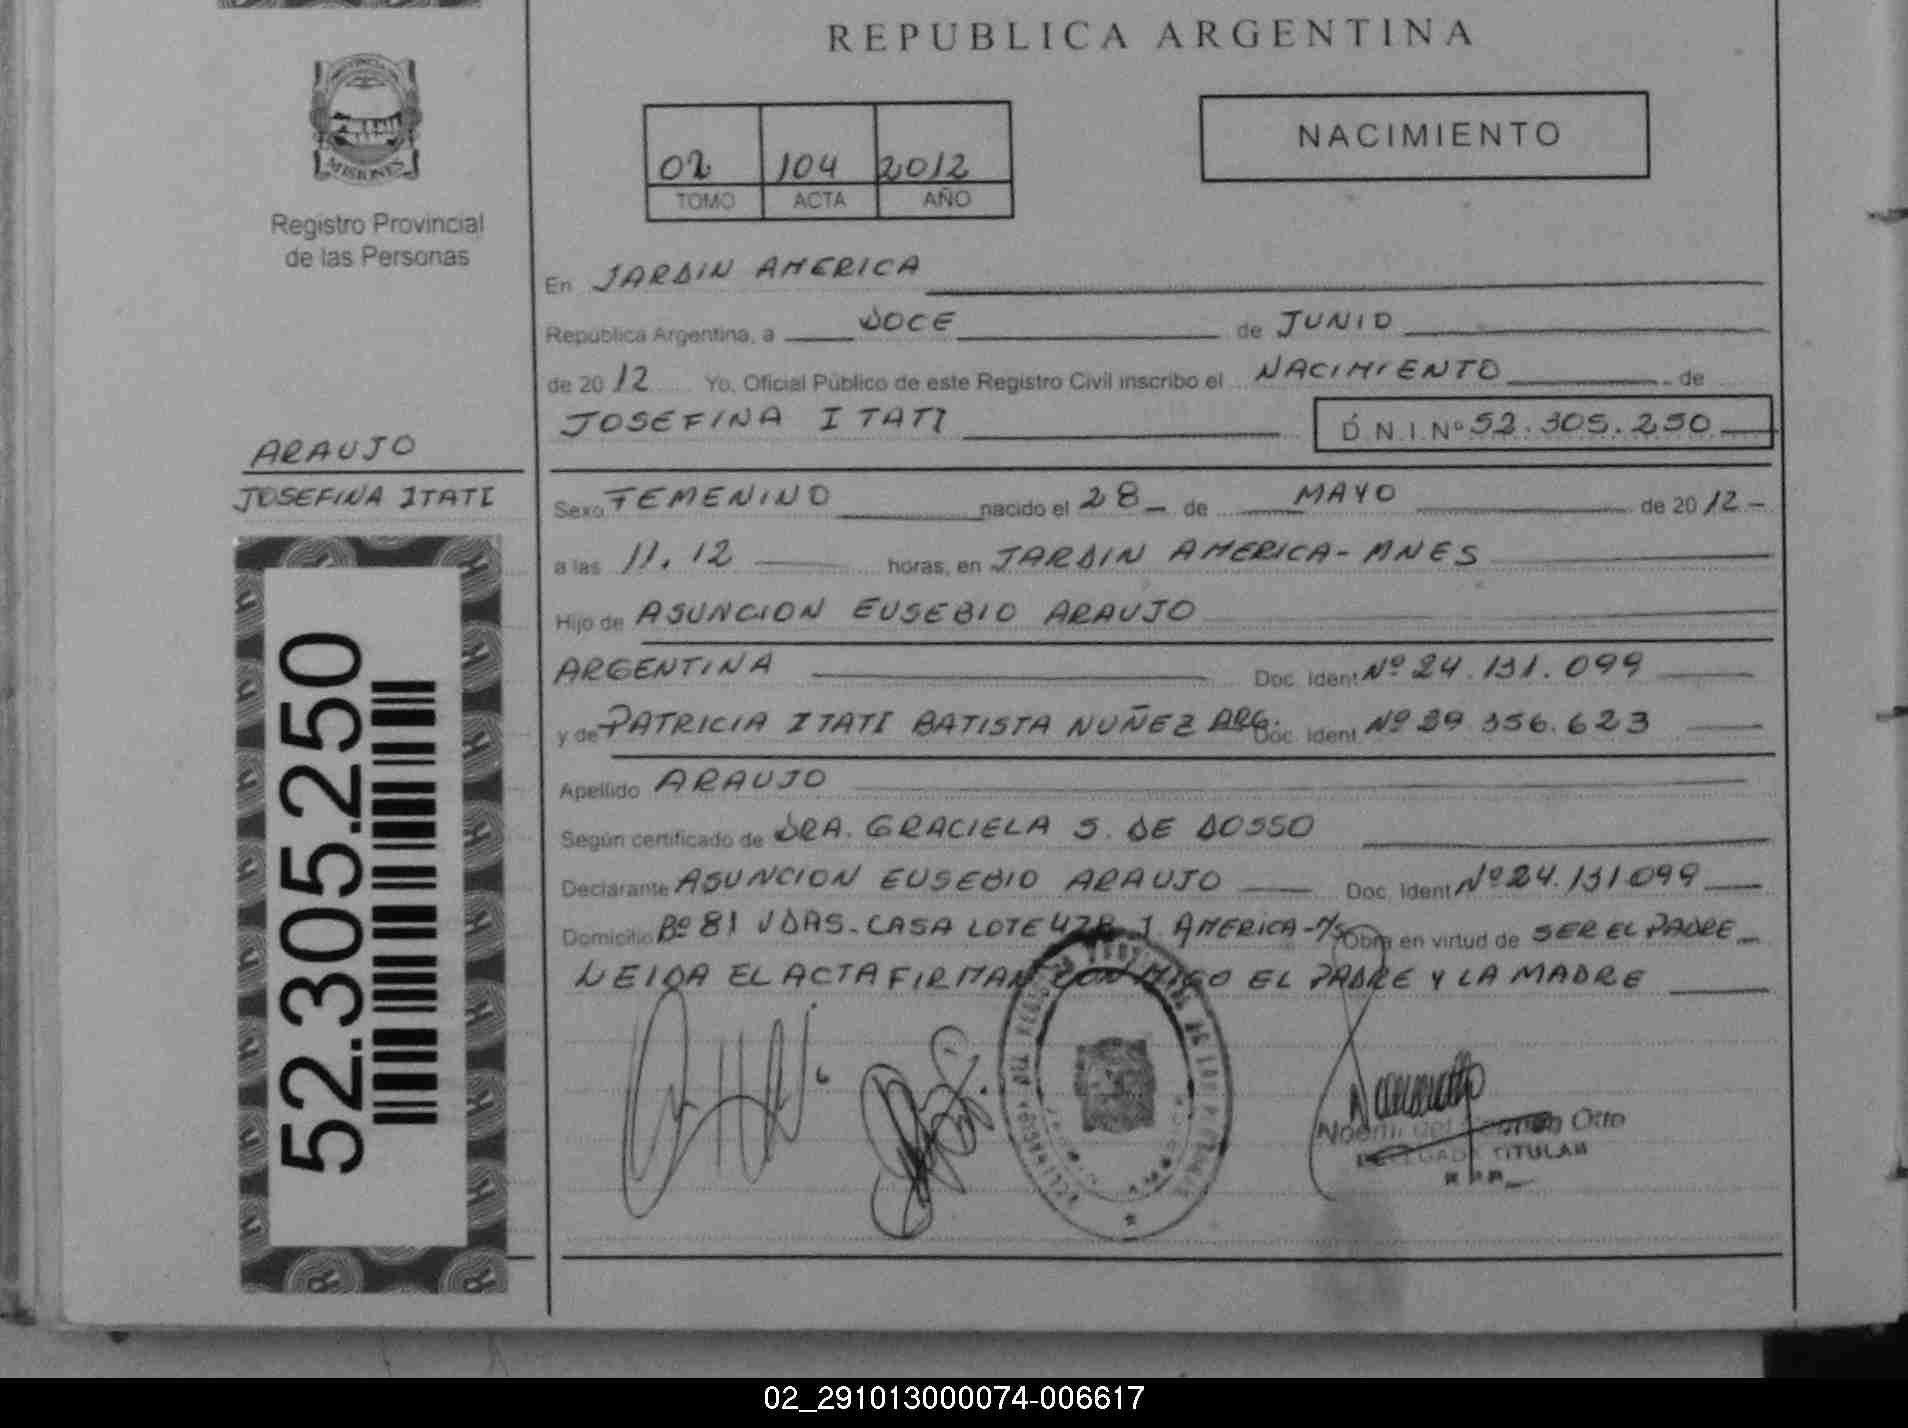 REPUBLICA ARGENTINA
NACIMIENTO
02 104 2012
TOMO ACTA AÑO
MISIONES
Registro Provincial
de las Personas
En JARDIN AMERICA
República Argentina, a DOCE de JUNIO
de 20 12 Yo, Oficial Público de este Registro Civil inscribo el NACIMIENTO de
JOSEFINA ITATI D.N.I.Nº 52.305.250
ARAUJO
JOSEFINA ITATI
Sexo FEMENINO nacido el 28 de MAYO de 20 12
a las 11.12 horas, en JARDIN AMERICA - MNES
Hijo de ASUNCION EUSEBIO ARAUJO
ARGENTINA Doc. Ident. Nº 24.131.099
y de PATRICIA ITATI BATISTA NUÑEZ ARG. Doc. Ident. Nº 39.356.623
Apellido ARAUJO
Según certificado de DRA. GRACIELA S. DE DOSSO
Declarante ASUNCION EUSEBIO ARAUJO Doc. Ident. Nº 24.131099
Domicilio Bº 81 VDAS. CASA LOTE J. AMERICA - Obra en virtud de SER EL PADRE
LEIDA EL ACTA FIRMAN CONMIGO EL PADRE Y LA MADRE
52.305.250
Noemi del Otto
DELEGADA TITULAR
02_291013000074-006617